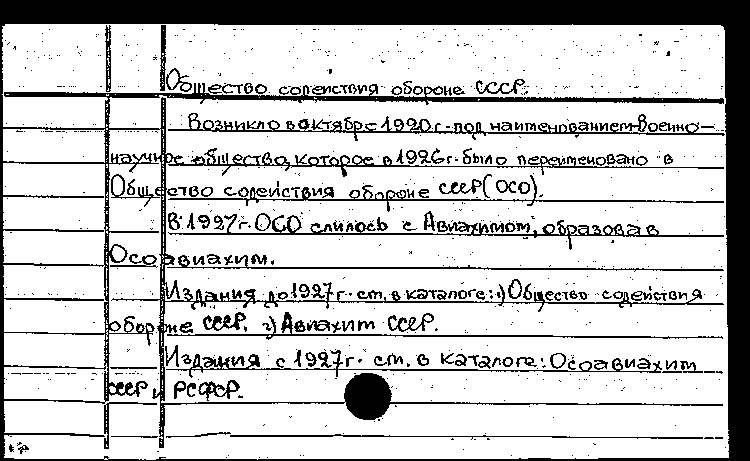 Общество содействия обороне СССР.
Возникло в октябре 1920 г. под наименованием Военно-
научное общество, которое в 1926 г. было переименовано в
Общество содействия обороне СССР (ОСО).
В 1927 г. ОСО слилось с Авиахимом, образовав
Осоавиахим.
Издания до 1927 г. см. в каталоге: 1) Общество содействия
обороне СССР, 2) Авиахим СССР.
Издания с 1927 г. см. в каталоге: Осоавиахим
СССР и РСФСР.